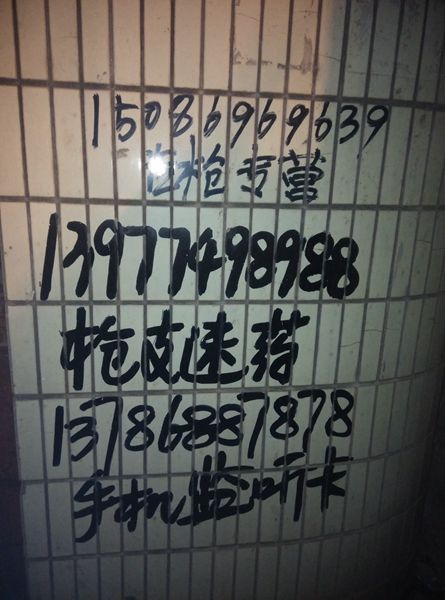 15086969639
枪专营
13977498988
枪支速搭
13786887878
手机监听卡